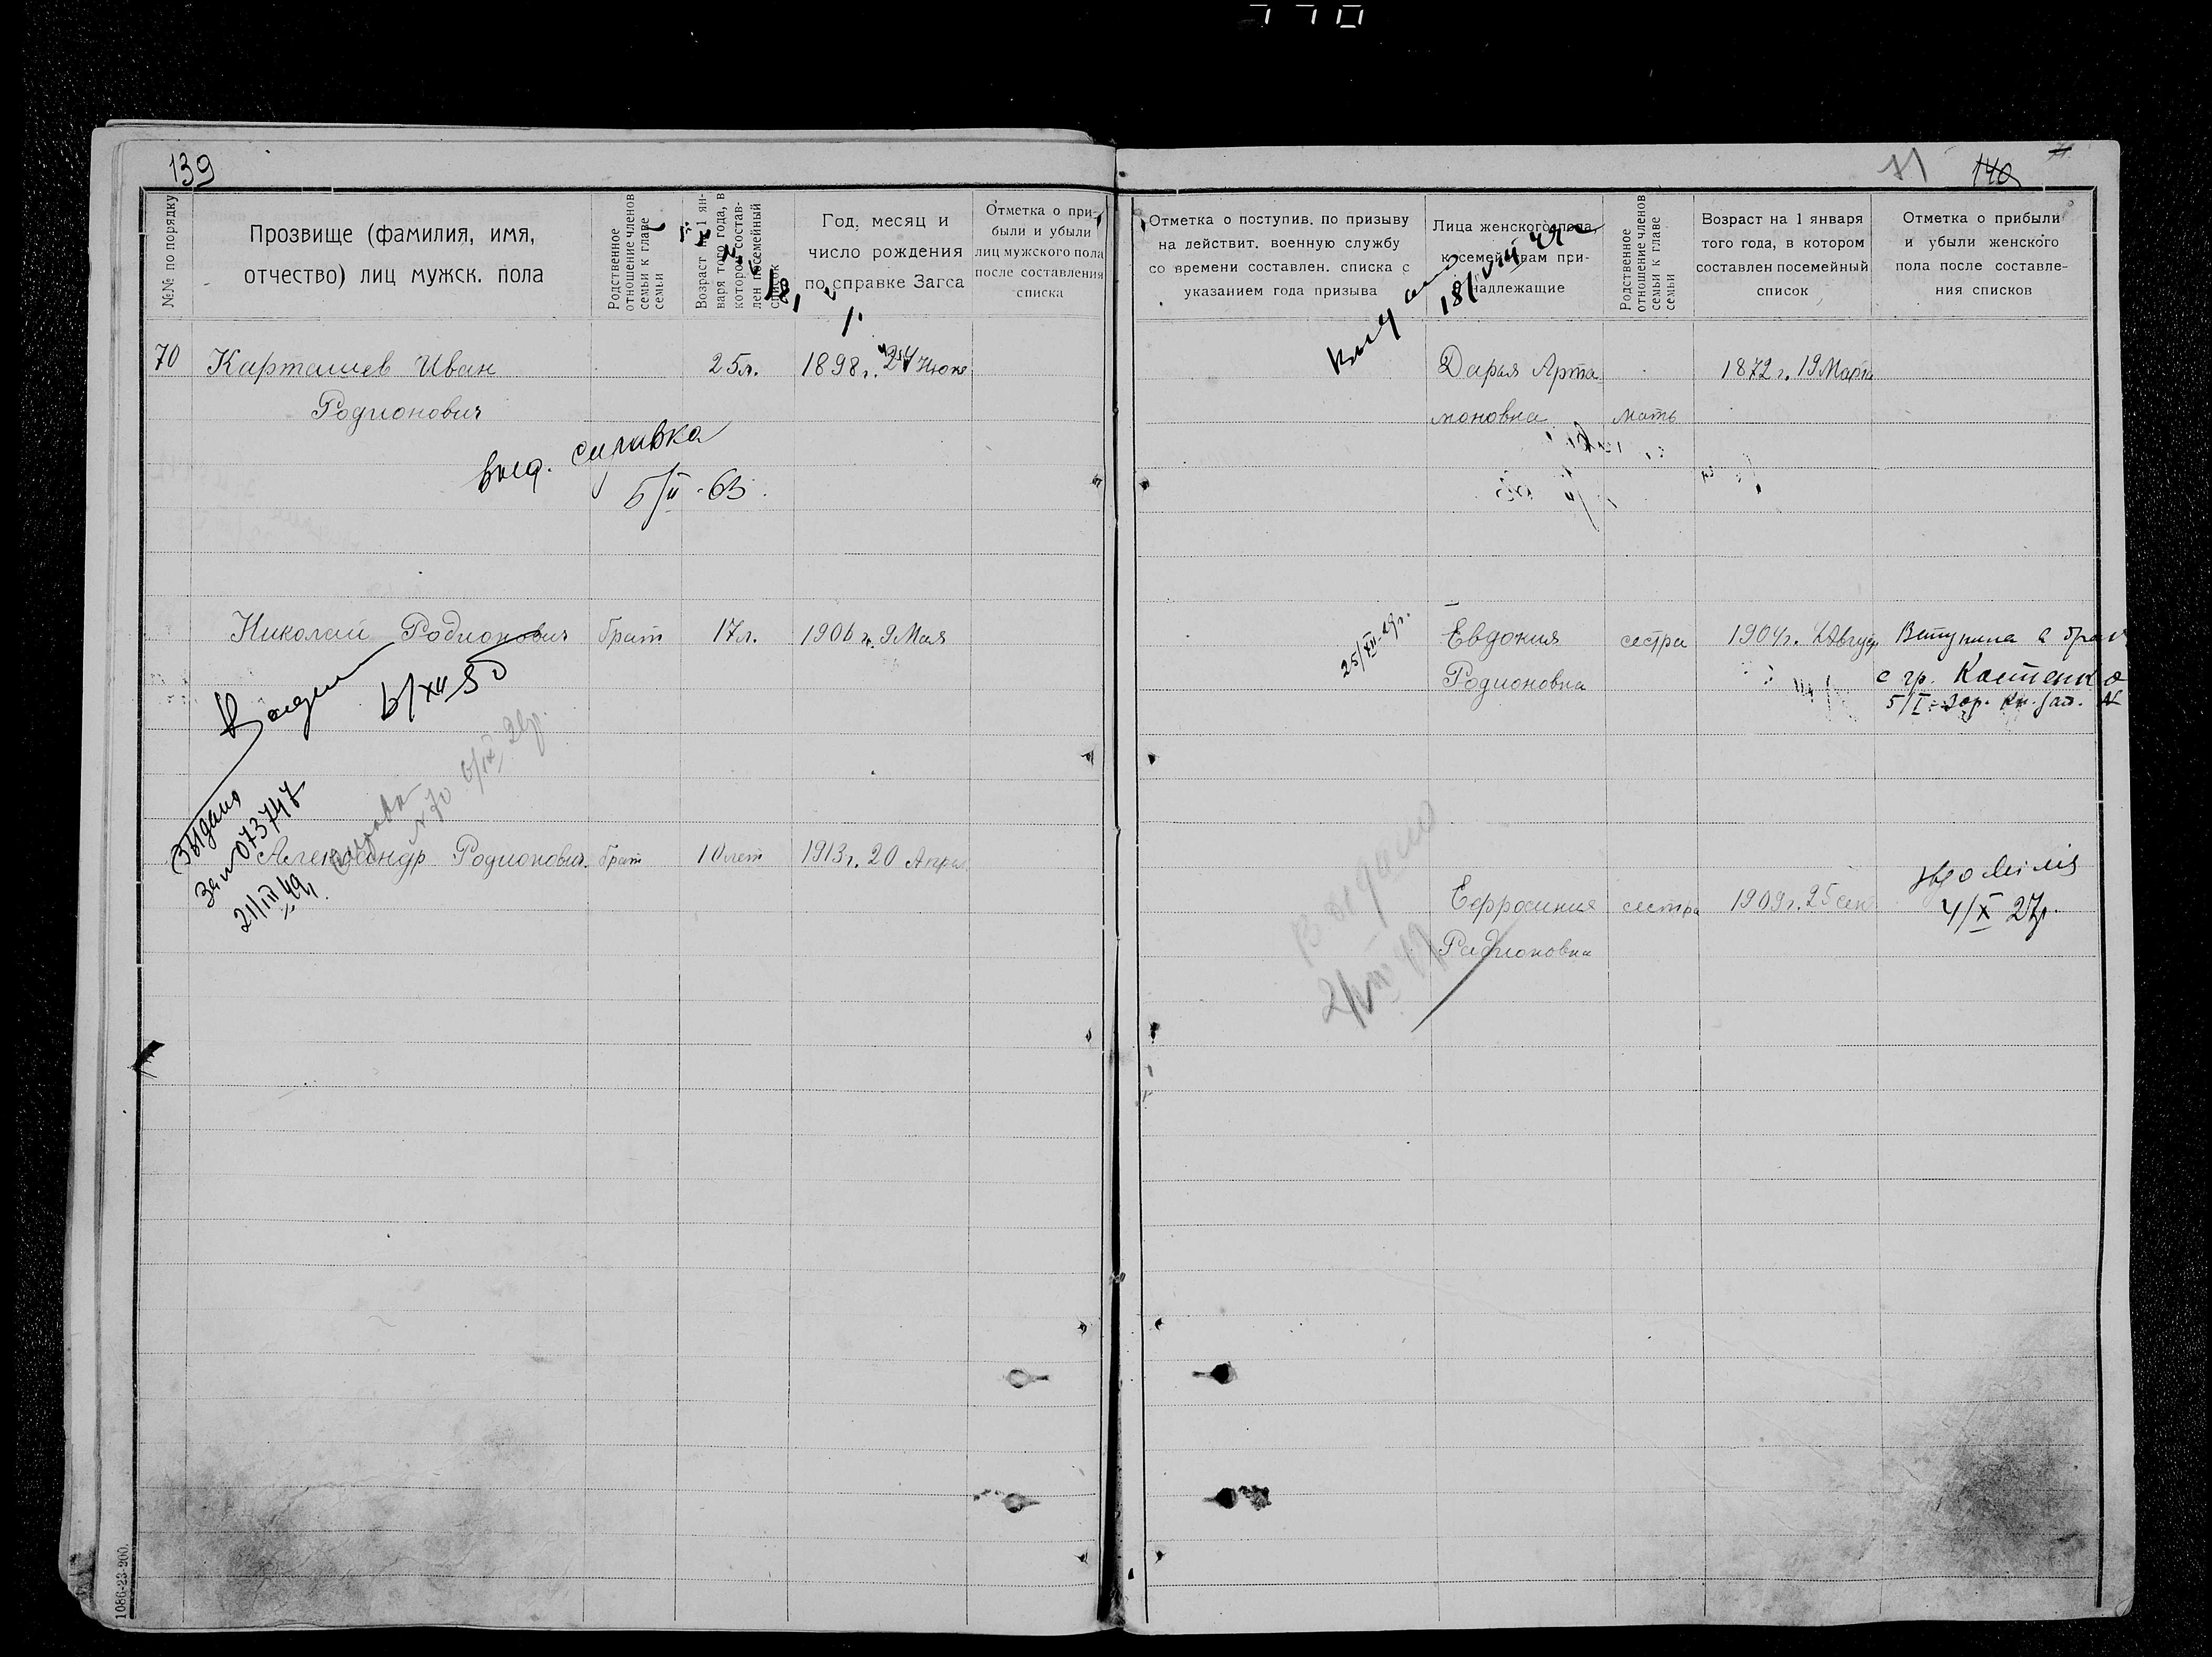 139
№№ по порядку
Прозвище (фамилия, имя,
отчество) лиц мужск. пола
Родственное
отношение членов
семьи к главе
семьи
Возраст на 1 ян-
варя того года, в
котором состав-
лен посемейный
список
Год, месяц и
число рождения
по справке Загса
Отметка о при-
были и убыли
лиц мужского пола
после составления
списка
70
Карташев Иван
Родионович
25л.
1898г. 24 Июне
выд. справка
5/II-63
Николай Родионович
брат
17л.
1906 г. 9 Мая
6/XII 50
Справка
№70 6/IX 29г.
Выдано
За № 073747
21/III 49г.
Александр Родионович
брат
10 лет
1913г. 20 Апре
1086-23-200.
71
140
Отметка о поступив. по призыву
на действит. военную службу
со времени составлен. списка с
указанием года призыва
Лица женского пола,
к семействам при-
надлежащие
Родственное
отношение членов
семьи к главе
семьи
Возраст на 1 января
того года, в котором
составлен посемейный
список
Отметка о прибыли
и убыли женского
пола после составле-
ния списков
Выдано
18/VIII 49г
Дарья Арта
моновна
мать
1872г. 19 Марта
25/XII-29г.
Евдокия
Родионовна
сестра
1904г. 1 Авгус
Вступила в брак
с гр. Костенко
Выдано
Ефросиния
Родионовна
сестра
1909г. 25 сен
4/X 27г.